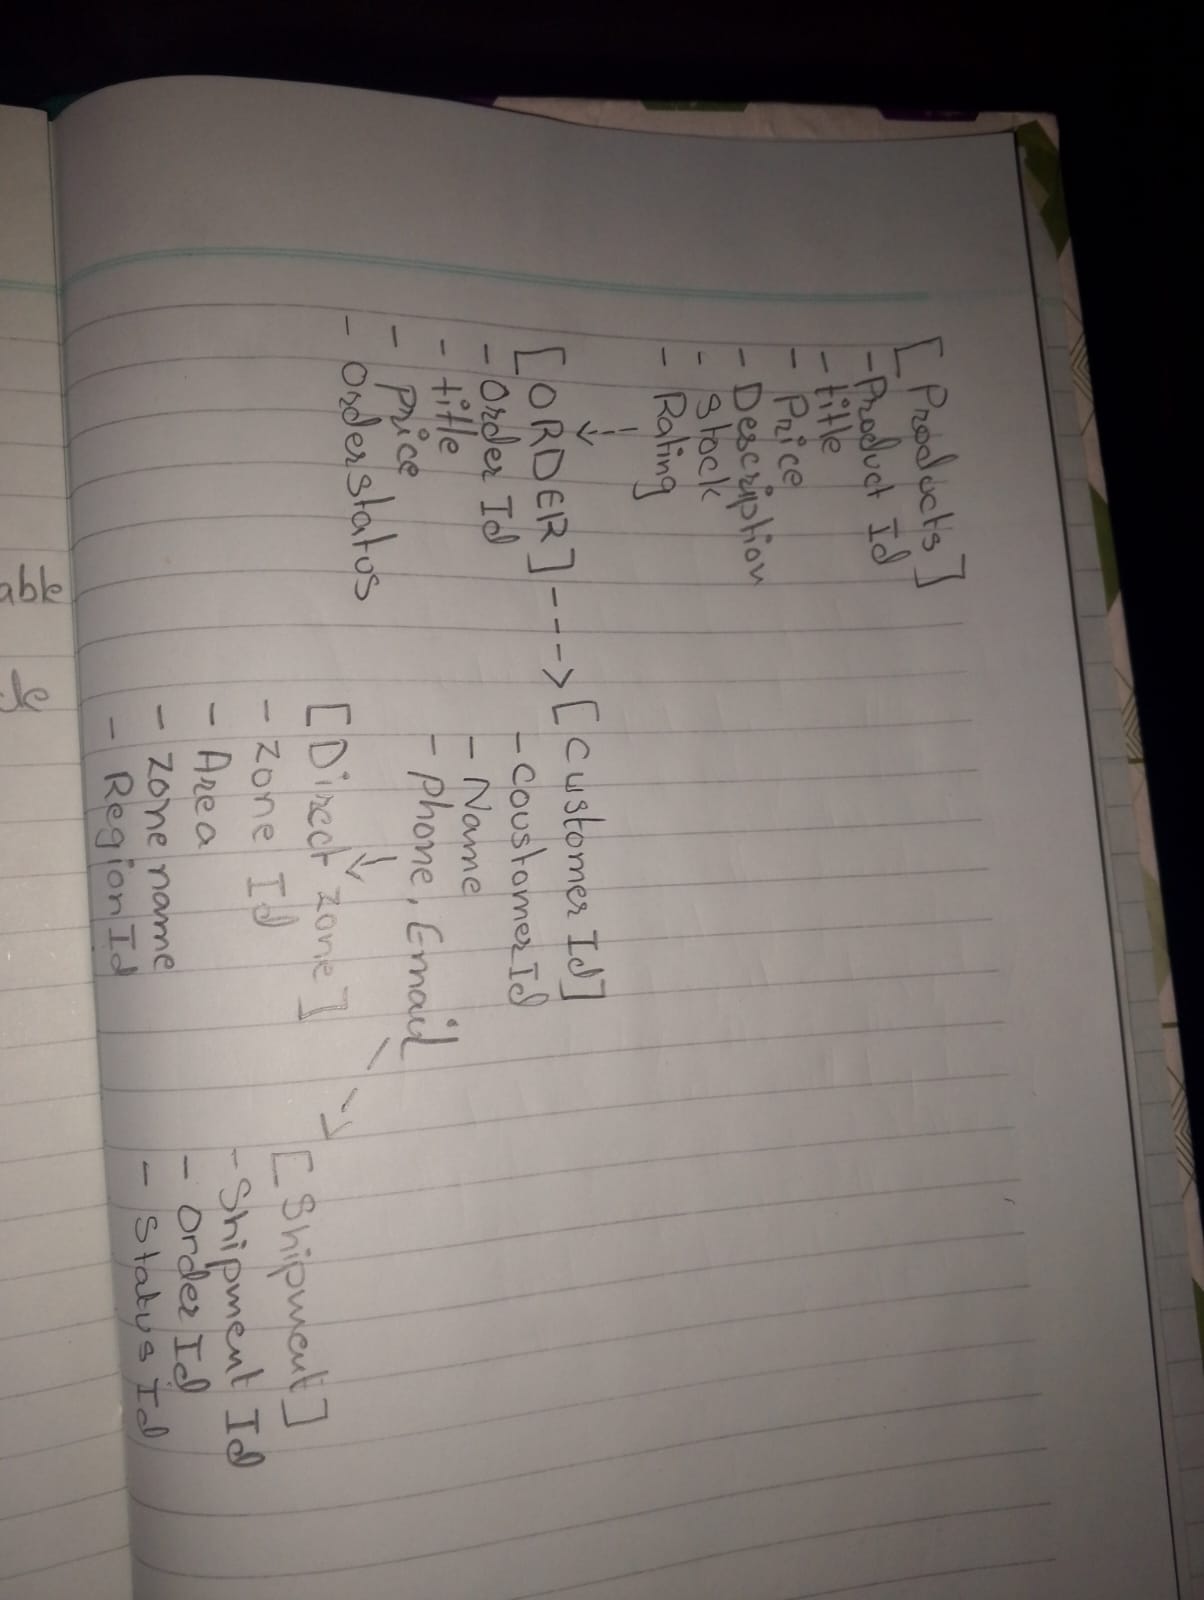 [Products]
- Product Id
- title
- Price
- Description
- Stock
- Rating
[ORDER] ---> [Customer Id]
- Order Id
- title
- Price
- Order status
- Coustomer Id
- Name
- Phone, Email
[Direct zone]
- Zone Id
- Area
- Zone name
- Region Id
[Shipment]
- Shipment Id
- Order Id
- Status Id
able